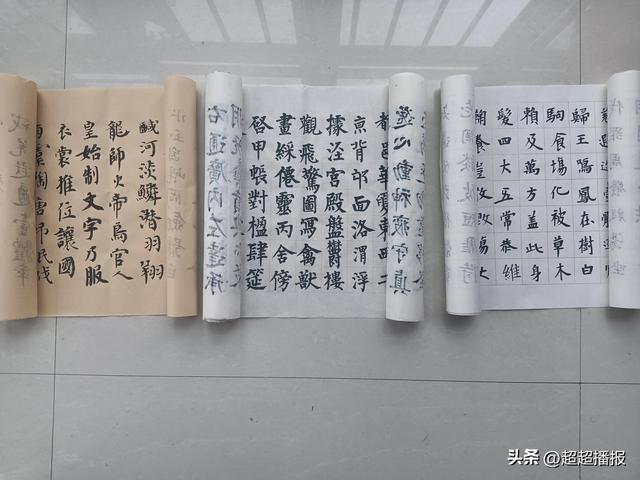 鹹河淡鱗潛羽翔
龍師火帝鳥官人
皇始制文字乃服
衣裳推位讓國
有虞陶唐弔民伐
心動神疲守真
都邑華夏東西二
京背邙面洛渭浮
據涇宮殿盤鬱樓
觀飛驚圖寫禽獸
畫綵僊靈丙舍傍
啓甲帳對楹肆筵
右通廣內左達承
歸王鳴鳳在樹白
駒食場化被草木
賴及萬方蓋此身
髮四大五常恭維
鞠養豈敢毀傷女
頭条 @超超播报